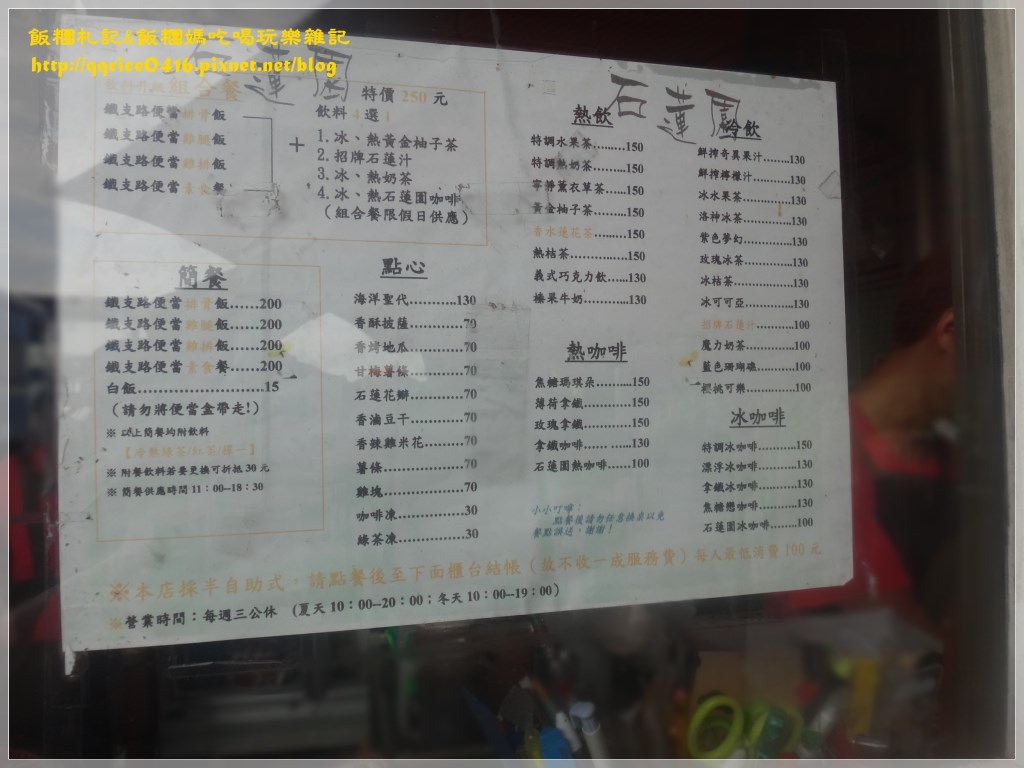 飯糰札記&飯糰媽吃喝玩樂雜記
http://qqrice0416.pixnet.net/blog
石蓮園
組合餐
特價 250 元
鐵支路便當排骨飯
鐵支路便當雞腿飯
鐵支路便當雞排飯
鐵支路便當素食餐
+
飲料 4 選 1
1. 冰、熱黃金柚子茶
2. 招牌石蓮汁
3. 冰、熱奶茶
4. 冰、熱石蓮園咖啡
(組合餐限假日供應)
簡餐
鐵支路便當排骨飯......200
鐵支路便當雞腿飯......200
鐵支路便當雞排飯......200
鐵支路便當素食餐......200
白飯..........................15
(請勿將便當盒帶走!)
※ 以上簡餐均附飲料
【冷熱綠茶/紅茶/擇一】
※ 附餐飲料若要更換可折抵 30 元
※ 簡餐供應時間 11:00--18:30
點心
海洋聖代...........130
香酥披薩............70
香烤地瓜............70
甘梅薯條............70
石蓮花瓣............70
香滷豆干............70
香辣雞米花.........70
薯條...................70
雞塊...................70
咖啡凍...............30
綠茶凍...............30
石蓮園
熱飲
特調水果茶.........150
特調熱奶茶........150
寧靜薰衣草茶...150
黃金柚子茶........150
香水蓮花茶........150
熱桔茶...............150
義式巧克力飲.....130
榛果牛奶...........130
熱咖啡
焦糖瑪琪朵........150
薄荷拿鐵...........150
玫瑰拿鐵...........150
拿鐵咖啡...........130
石蓮園熱咖啡......100
小小叮嚀:
點餐後請勿任意換桌以免
餐點誤送、謝謝!
冷飲
鮮搾奇異果汁........130
鮮搾檸檬汁..........130
冰水果茶.............130
洛神冰茶.............130
紫色夢幻.............130
玫瑰冰茶.............130
冰桔茶................130
冰可可亞.............130
招牌石蓮汁..........100
魔力奶茶.............100
藍色珊瑚礁..........100
櫻桃可樂.............100
冰咖啡
特調冰咖啡..........150
漂浮冰咖啡.........130
拿鐵冰咖啡.........130
焦糖戀咖啡.........130
石蓮園冰咖啡.......100
※本店採半自助式,請點餐後至下面櫃台結帳(故不收一成服務費)每人最低消費 100 元
※營業時間:每週三公休 (夏天 10:00--20:00;冬天 10:00--19:00)